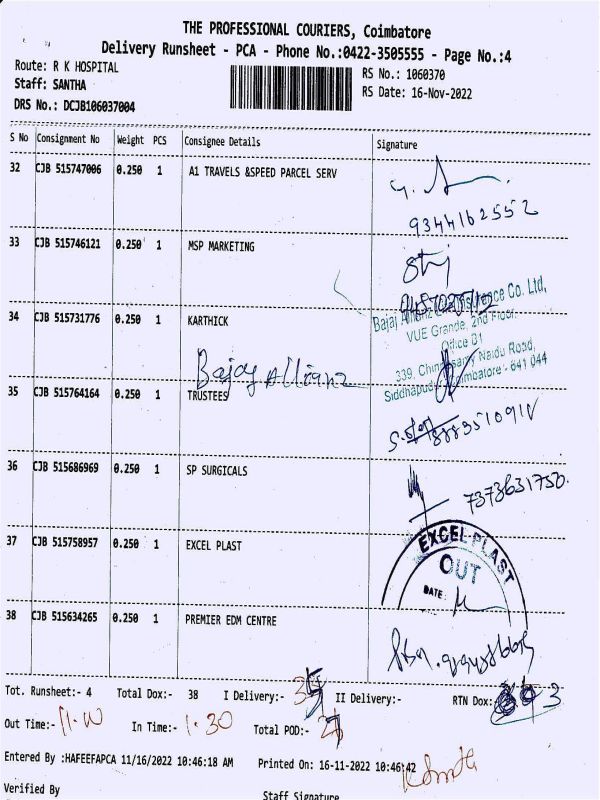 THE PROFESSIONAL COURIERS, Coimbatore
Delivery Runsheet - PCA - Phone No.:0422-3505555 - Page No.:4
Route: R K HOSPITAL
RS No.: 1060370
Staff: SANTHA
RS Date: 16-Nov-2022
DRS No.: DCJB106037004
S No Consignment No Weight PCS Consignee Details Signature
32 CJB 515747006 0.250 1 A1 TRAVELS &SPEED PARCEL SERV
9344162552
33 CJB 515746121 0.250 1 MSP MARKETING
Bajaj Allianz Insurance Co. Ltd,
34 CJB 515731776 0.250 1 KARTHICK
VUE Grande, 2nd Floor
Office 01
339, Chinnasamy Naidu Road,
Bajaj Allianz
Siddhapudur, Coimbatore - 641 044
35 CJB 515764164 0.250 1 TRUSTEES
36 CJB 515686969 0.250 1 SP SURGICALS
7373631750.
37 CJB 515758957 0.250 1 EXCEL PLAST
EXCEL-PLAST
OUT
DATE:
38 CJB 515634265 0.250 1 PREMIER EDM CENTRE
Tot. Runsheet:- 4 Total Dox:- 38 I Delivery:- II Delivery:- RTN Dox:- 3
Out Time:- 11.10 In Time:- 1.30 Total POD:-
Entered By :HAFEEFAPCA 11/16/2022 10:46:18 AM Printed On: 16-11-2022 10:46:42
Verified By Staff Signature